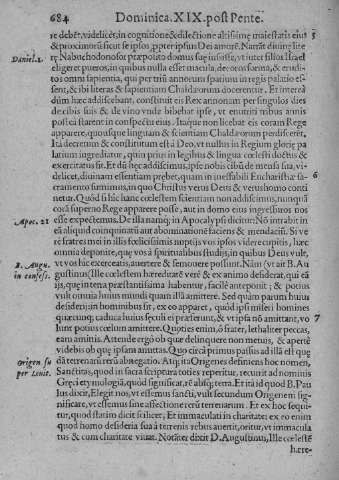 684 Dominica. XIX. post Pente.
re debẽt, videlicet, in cognitione & dilectione altissimę maiestatis eius 5
& proximorũ sicut se ipsos, ppter ipsius Dei amorẽ. Narrãt diuinę lite
Daniel. 1. rę, Nabuchodonosor præposito domus suę iussisse, vt iuuet filios Israel
eligeret pueros, in quibus nulla esset macula, decoros forma, & erudi-
tos omni sapientia, qui per triũ annorum spatium in regis palatio es-
sent, & ibi literas & sapientiam Chaldæorum docerentur. Et interea
dũm hæc addiscebant, constituit eis Rex annonam per singulos dies
de cibis suis & de vino vnde bibebat ipse, vt enutriti tribus annis
postea starent in conspectu eius. Itaque non licebat eis coram Rege
apparere, quousque linguam & scientiam Chaldæorum perdiscerẽt,
Ita decretum & constitutum est à Deo, vt nullus in Regium glorię pa
latium ingrediatur, quin prius in legibus & lingua cœlesti doctus &
exercitatus sit. Et dũ hęc addiscimus, ipse nobis cibũ de mensa sua, vi-
delicet, diuinam essentiam præbet, quam in ineffabili Eucharistiæ sa- 6
cramento sumimus, in quo Christus verus Deus & verus homo conti
netur. Quòd si hic hanc cœlestem scientiam non addiscimus, nunquã
corã superno Rege apparere posse, aut in domo eius ingressuros nos
Apoc. 21 esse expectemus. De illa namq; in Apocalypsi dicitur: Nõ intrabit in
eã aliquid coinquinatũ aut abominationẽ faciens & mendaciũ. Si ve
rè fratres mei in illis fœlicissimis nuptijs vos ipsos videre cupitis, hæc
omnia deponite, quę vos à spiritualibus studijs, in quibus Deus vult,
B. Augu. vt vos hic exerceatis, auertere & semouere possunt. Nam (vt ait B. Au
in confess. gustinus) Ille cœlestem hæreditatẽ verè & ex animo desiderat, qui eã
ijs, quę in terra præstantissima habentur, facilè anteponit; & potius
vult omnia huius mundi quam illã amittere. Sed quàm parum huius
desiderij in hominibus sit, ex eo apparet, quòd ipsimet homines
quæcunq; caduca huius seculi ei præferunt, & vt ipsa nõ amittant, vo 7
lunt potius cœlum amittere. Quoties enim, ô frater, lethaliter peccas,
eam amittis. Attende ergò ob quæ delinquere non metuis, & apertè
videbis ob quę ipsam amittas. Quo circà primus passus ad illã est quę
Origen. su dã terrenarũ rerũ abnegatio. Atq; ita Origenes definiens hoc nomen,
per Leuit. Sanctitas, quod in sacra scriptura toties reperitur, recurrit ad nominis
Gręci etymologiã, quod significat, rẽ absq; terra. Et ita id quod B. Pau
lus dixit, Elegit nos, vt essemus sancti, vult secundum Origenem sig-
nificare, vt essemus sine affectione rerũ terrenarum. Et ex hoc sequi-
tur, quod statim dicit scilicet, Et immaculati in charitate: ex eo enim
quod homo desideria sua à terrenis rebus auertit, oritur, vt immacula
tus & cum charitate viuat. Notãter dixit D. Augustinus, Ille cœlestẽ
hære-